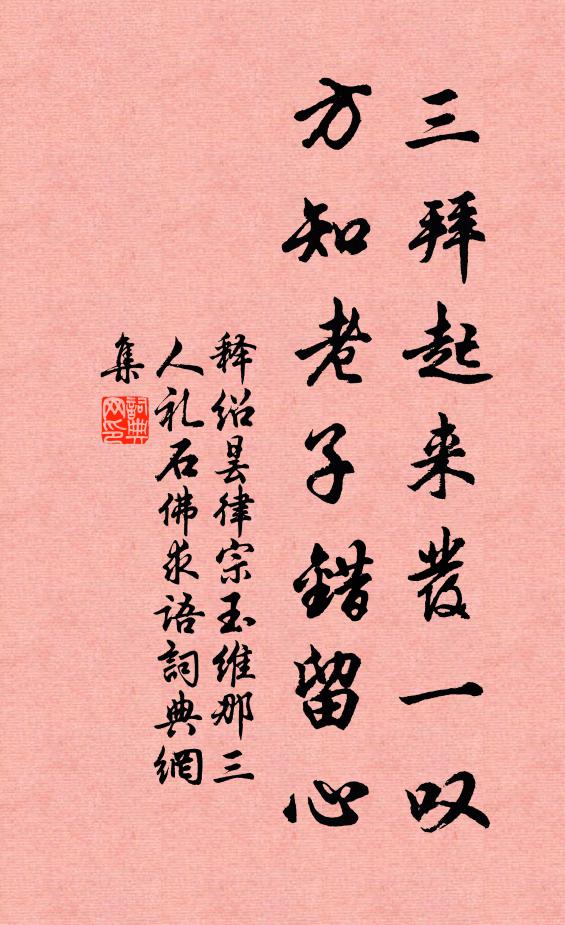 三拜起来發一叹
方知老子錯留心
释绍昙律宗玉維那三
人礼石佛求语詞典網
集
詞典網印